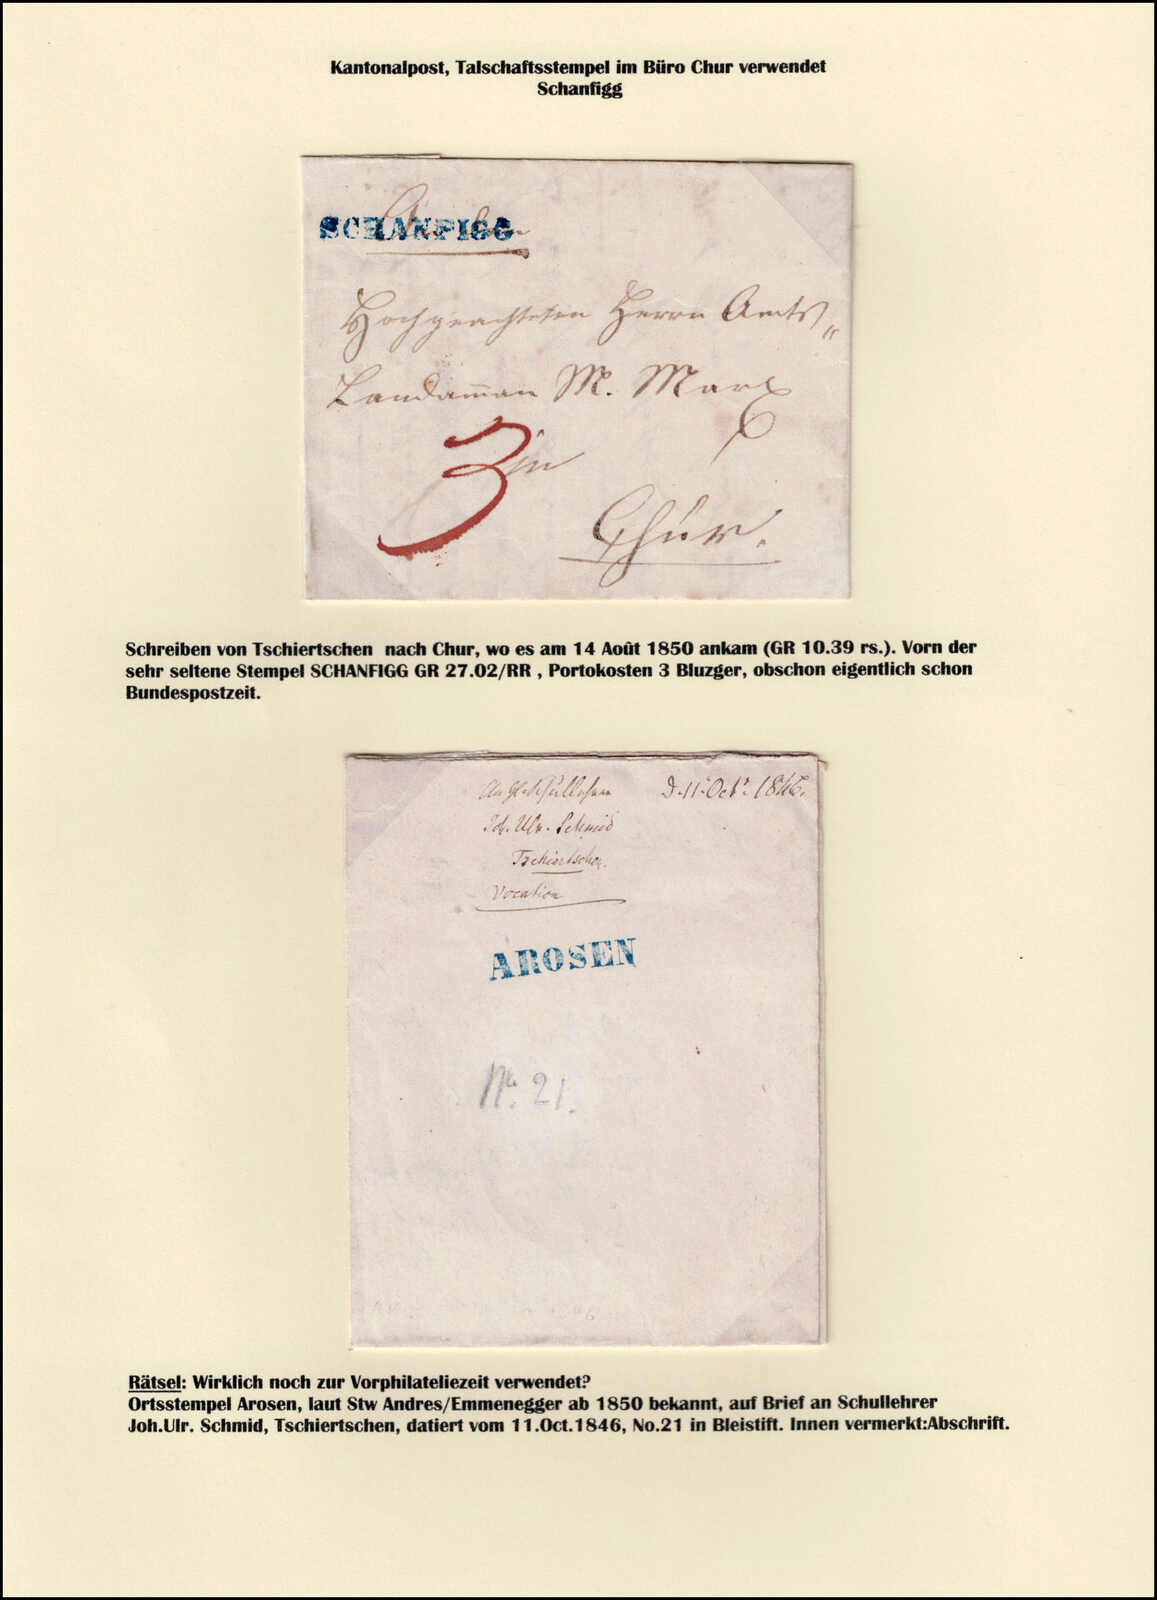 Kantonalpost, Talschaftsstempel im Büro Chur verwendet
Schanfigg
SCHANFIGG
Hochgeachteten Herrn Amts„
Landaman M. Marx
3 in
Chur.
Schreiben von Tschiertschen nach Chur, wo es am 14 Août 1850 ankam (GR 10.39 rs.). Vorn der
sehr seltene Stempel SCHANFIGG GR 27.02/RR , Portokosten 3 Bluzger, obschon eigentlich schon
Bundespostzeit.
D. 11. Oct. 1846.
Joh. Ulr. Schmid
Tschiertschen.
Vocation
AROSEN
No. 21.
Rätsel: Wirklich noch zur Vorphilateliezeit verwendet?
Ortsstempel Arosen, laut Stw Andres/Emmenegger ab 1850 bekannt, auf Brief an Schullehrer
Joh.Ulr. Schmid, Tschiertschen, datiert vom 11.Oct.1846, No.21 in Bleistift. Innen vermerkt:Abschrift.